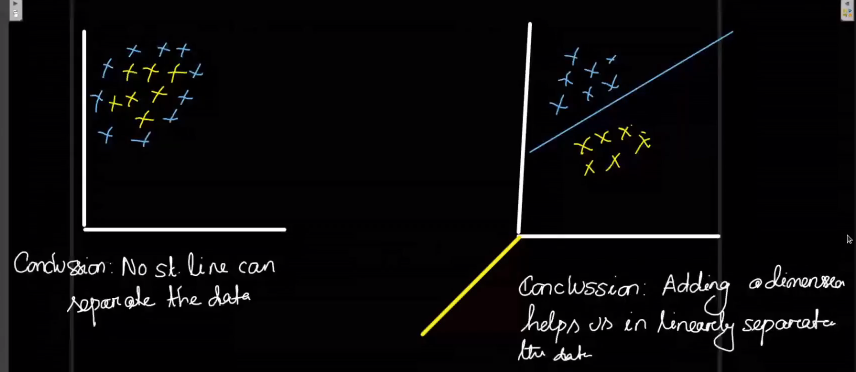 Conclussion: No st. line can
separate the data
Conclussion: Adding a dimension
helps us in linearly separate
the data